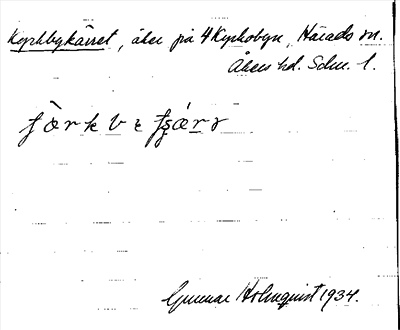 Kyrkbykärret, åker på 4 Kyrkobyn, Härads sn.
Åkers hd. Sdm. l.
Gunnar Holmquist 1934.